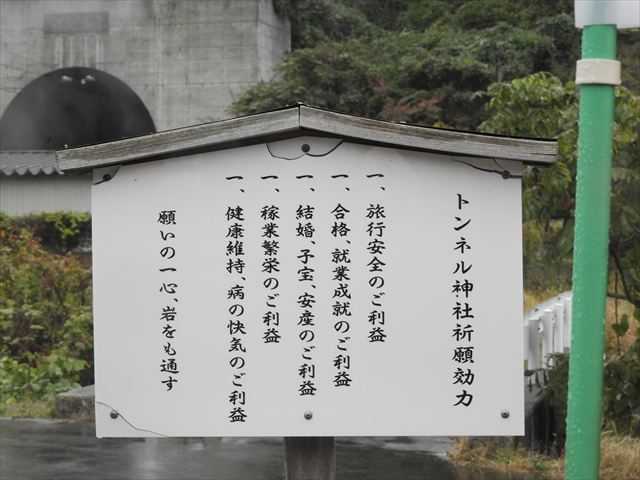 トンネル神社祈願効力
一、旅行安全のご利益
一、合格、就業成就のご利益
一、結婚、子宝、安産のご利益
一、稼業繁栄のご利益
一、健康維持、病の快気のご利益
願いの一心、岩をも通す